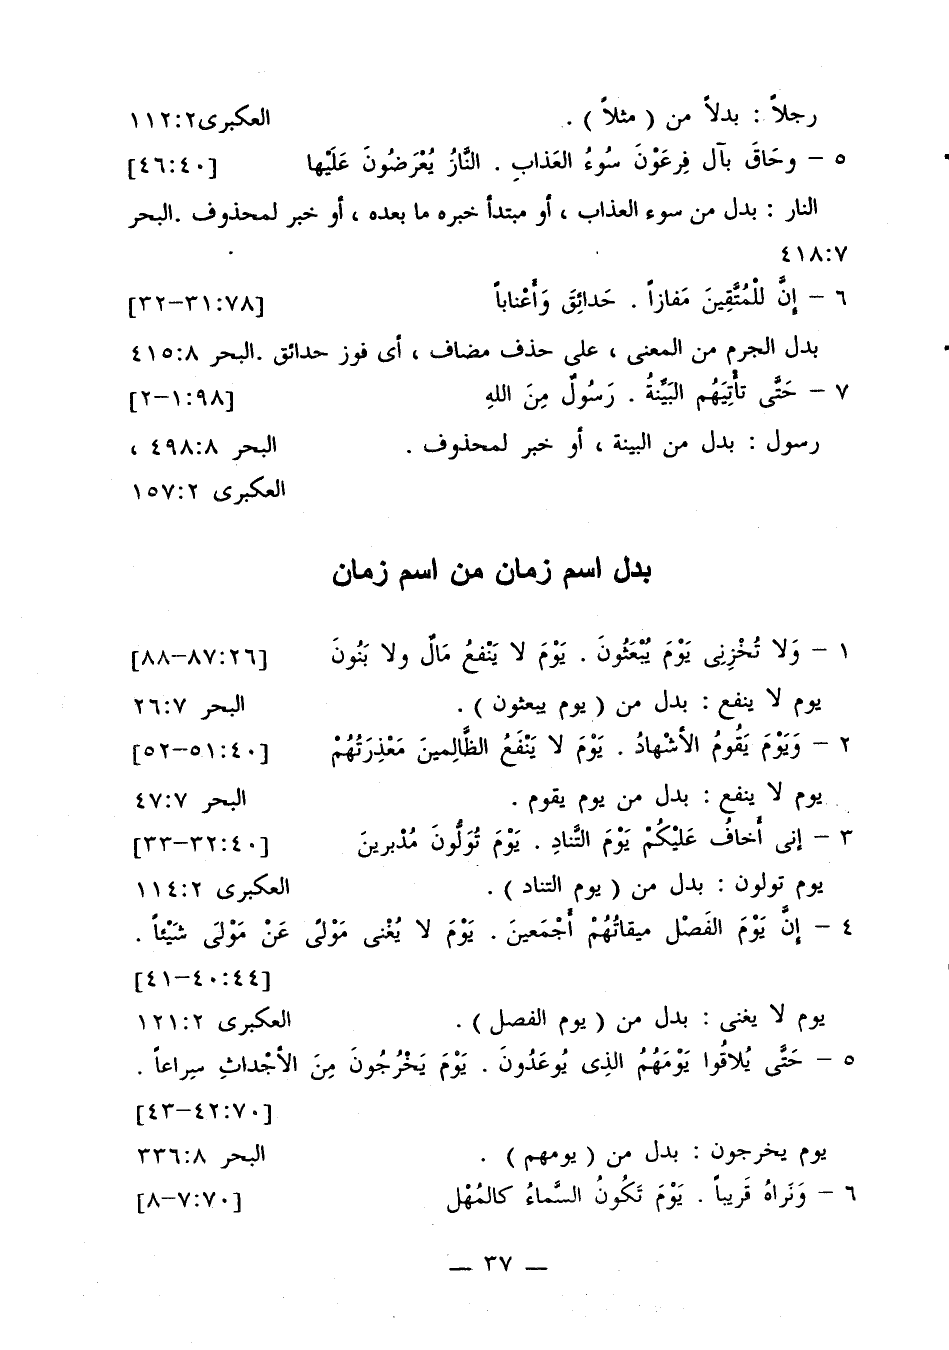 رجلاً : بدلاً من ( مثلاً ) . العكبرى١١٢:٢
٥ – وحَاقَ بآل فِرعَوْنَ سُوءُ العَذابِ . النَّارُ يُعْرَضُونَ عَلَيْها [٤٦:٤٠]
النار : بدل من سوء العذاب ، أو مبتدأ خبره ما بعده ، أو خبر لمحذوف .البحر
٤١٨:٧
٦ – إنَّ للْمُتَّقِينَ مَفازاً . حَدائِقَ وَأَعْناباً [٣١:٧٨–٣٢]
بدل الجرم من المعنى ، على حذف مضاف ، أى فوز حدائق .البحر ٤١٥:٨
٧ – حَتَّى تأْتِيَهُم البَيِّنةُ . رَسُولٌ مِنَ اللهِ [١:٩٨–٢]
رسول : بدل من البينة ، أو خبر لمحذوف . البحر ٤٩٨:٨ ،
العكبرى ١٥٧:٢
بدل اسم زمان من اسم زمان
١ – وَلا تُخْزِنِى يَوْمَ يُبْعَثُونَ . يَوْمَ لا يَنْفعُ مَالٌ ولا بَنُونَ [٨٧:٢٦–٨٨]
يوم لا ينفع : بدل من ( يوم يبعثون ) . البحر ٢٦:٧
٢ – وَيَوْمَ يَقُومُ الأشْهادُ . يَوْمَ لا يَنْفَعُ الظَّالِمينَ مَعْذِرَتُهُمْ [٥١:٤٠–٥٢]
يوم لا ينفع : بدل من يوم يقوم . البحر ٤٧:٧
٣ – إنى أَخافُ عَلَيْكُمْ يَوْمَ التَّنادِ . يَوْمَ تُوَلُّونَ مُدْبرينَ [٣٢:٤٠–٣٣]
يوم تولون : بدل من ( يوم التناد ) . العكبرى ١١٤:٢
٤ – إنَّ يَوْمَ الفَصْل ميقاتُهُمْ أَجْمَعينَ . يَوْمَ لا يُغْنى مَوْلىً عَنْ مَوْلىَ شَيْئاً .
[٤٠:٤٤–٤١]
يوم لا يغنى : بدل من ( يوم الفصل ) . العكبرى ١٢١:٢
٥ – حَتَّى يُلاقُوا يَوْمَهُمُ الذِى يُوعَدُونَ . يَوْمَ يَخْرُجُونَ مِنَ الأجْداثِ سِراعاً .
[٤٢:٧٠–٤٣]
يوم يخرجون : بدل من ( يومهم ) . البحر ٣٣٦:٨
٦ – وَنَراهُ قَريباً . يَوْمَ تَكُونُ السَّماءُ كالمُهْل [٧:٧٠–٨]
— ٣٧ —